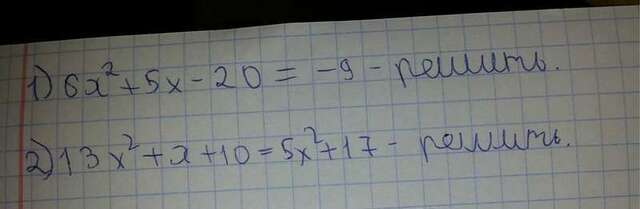 1) 6x²+5x-20=-9-решить.
2) 13x²+x+10=5x²+17-решить.